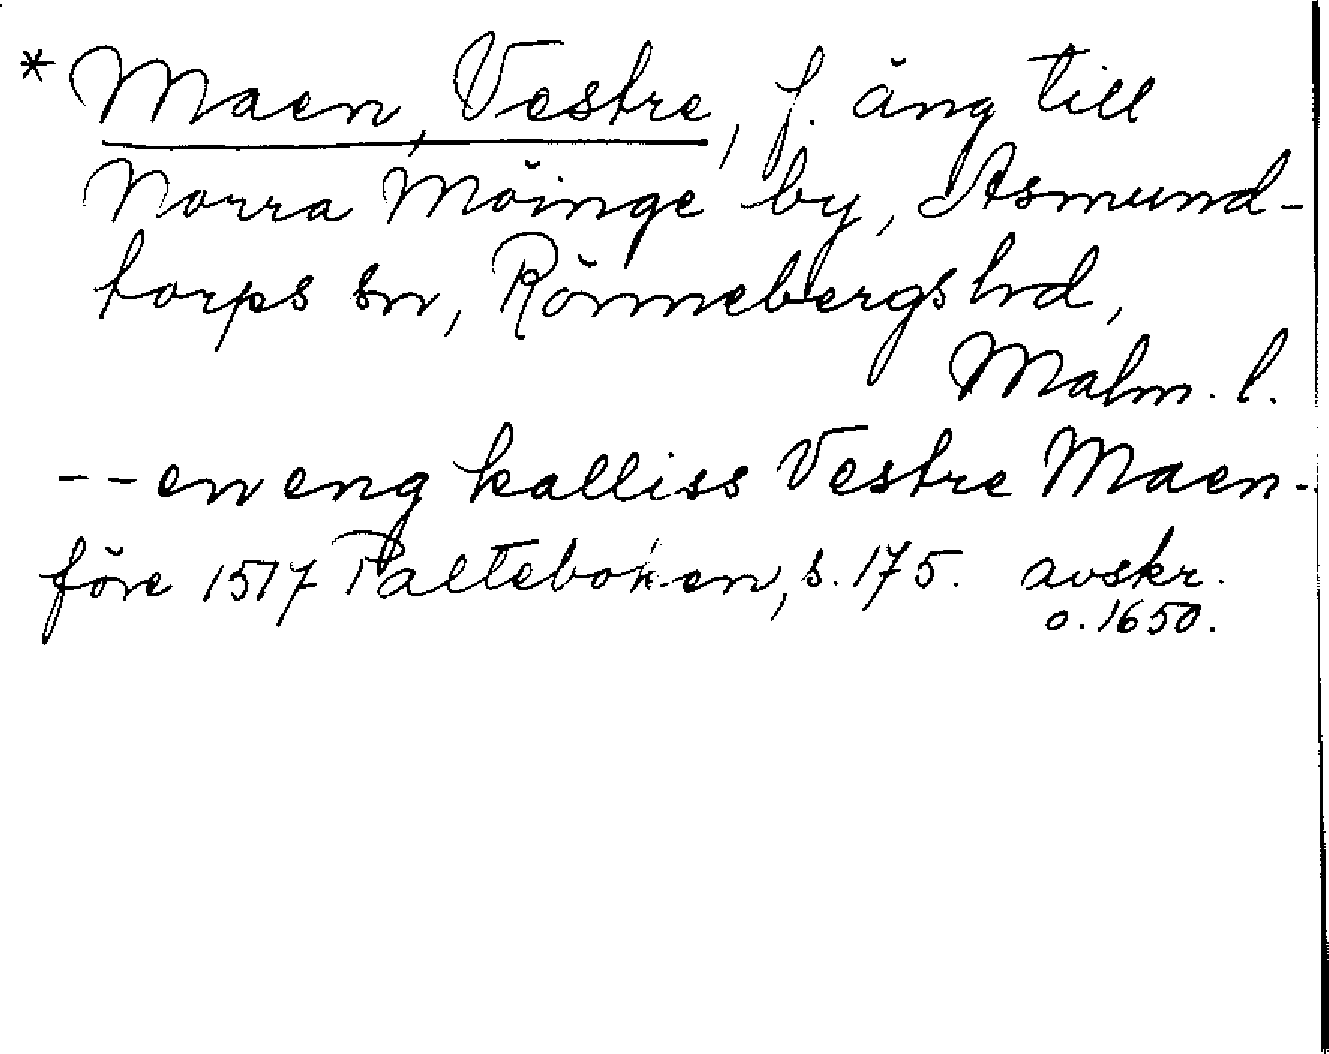 * Maen, Vestre, f. äng till
Norra Möinge by, Asmund-
torps sn, Rönnebergs hd,
Malm. l.
-- en eng kalliss Vestre Maen -
före 1517 Palteboken, s. 175. avskr.
o. 1650.